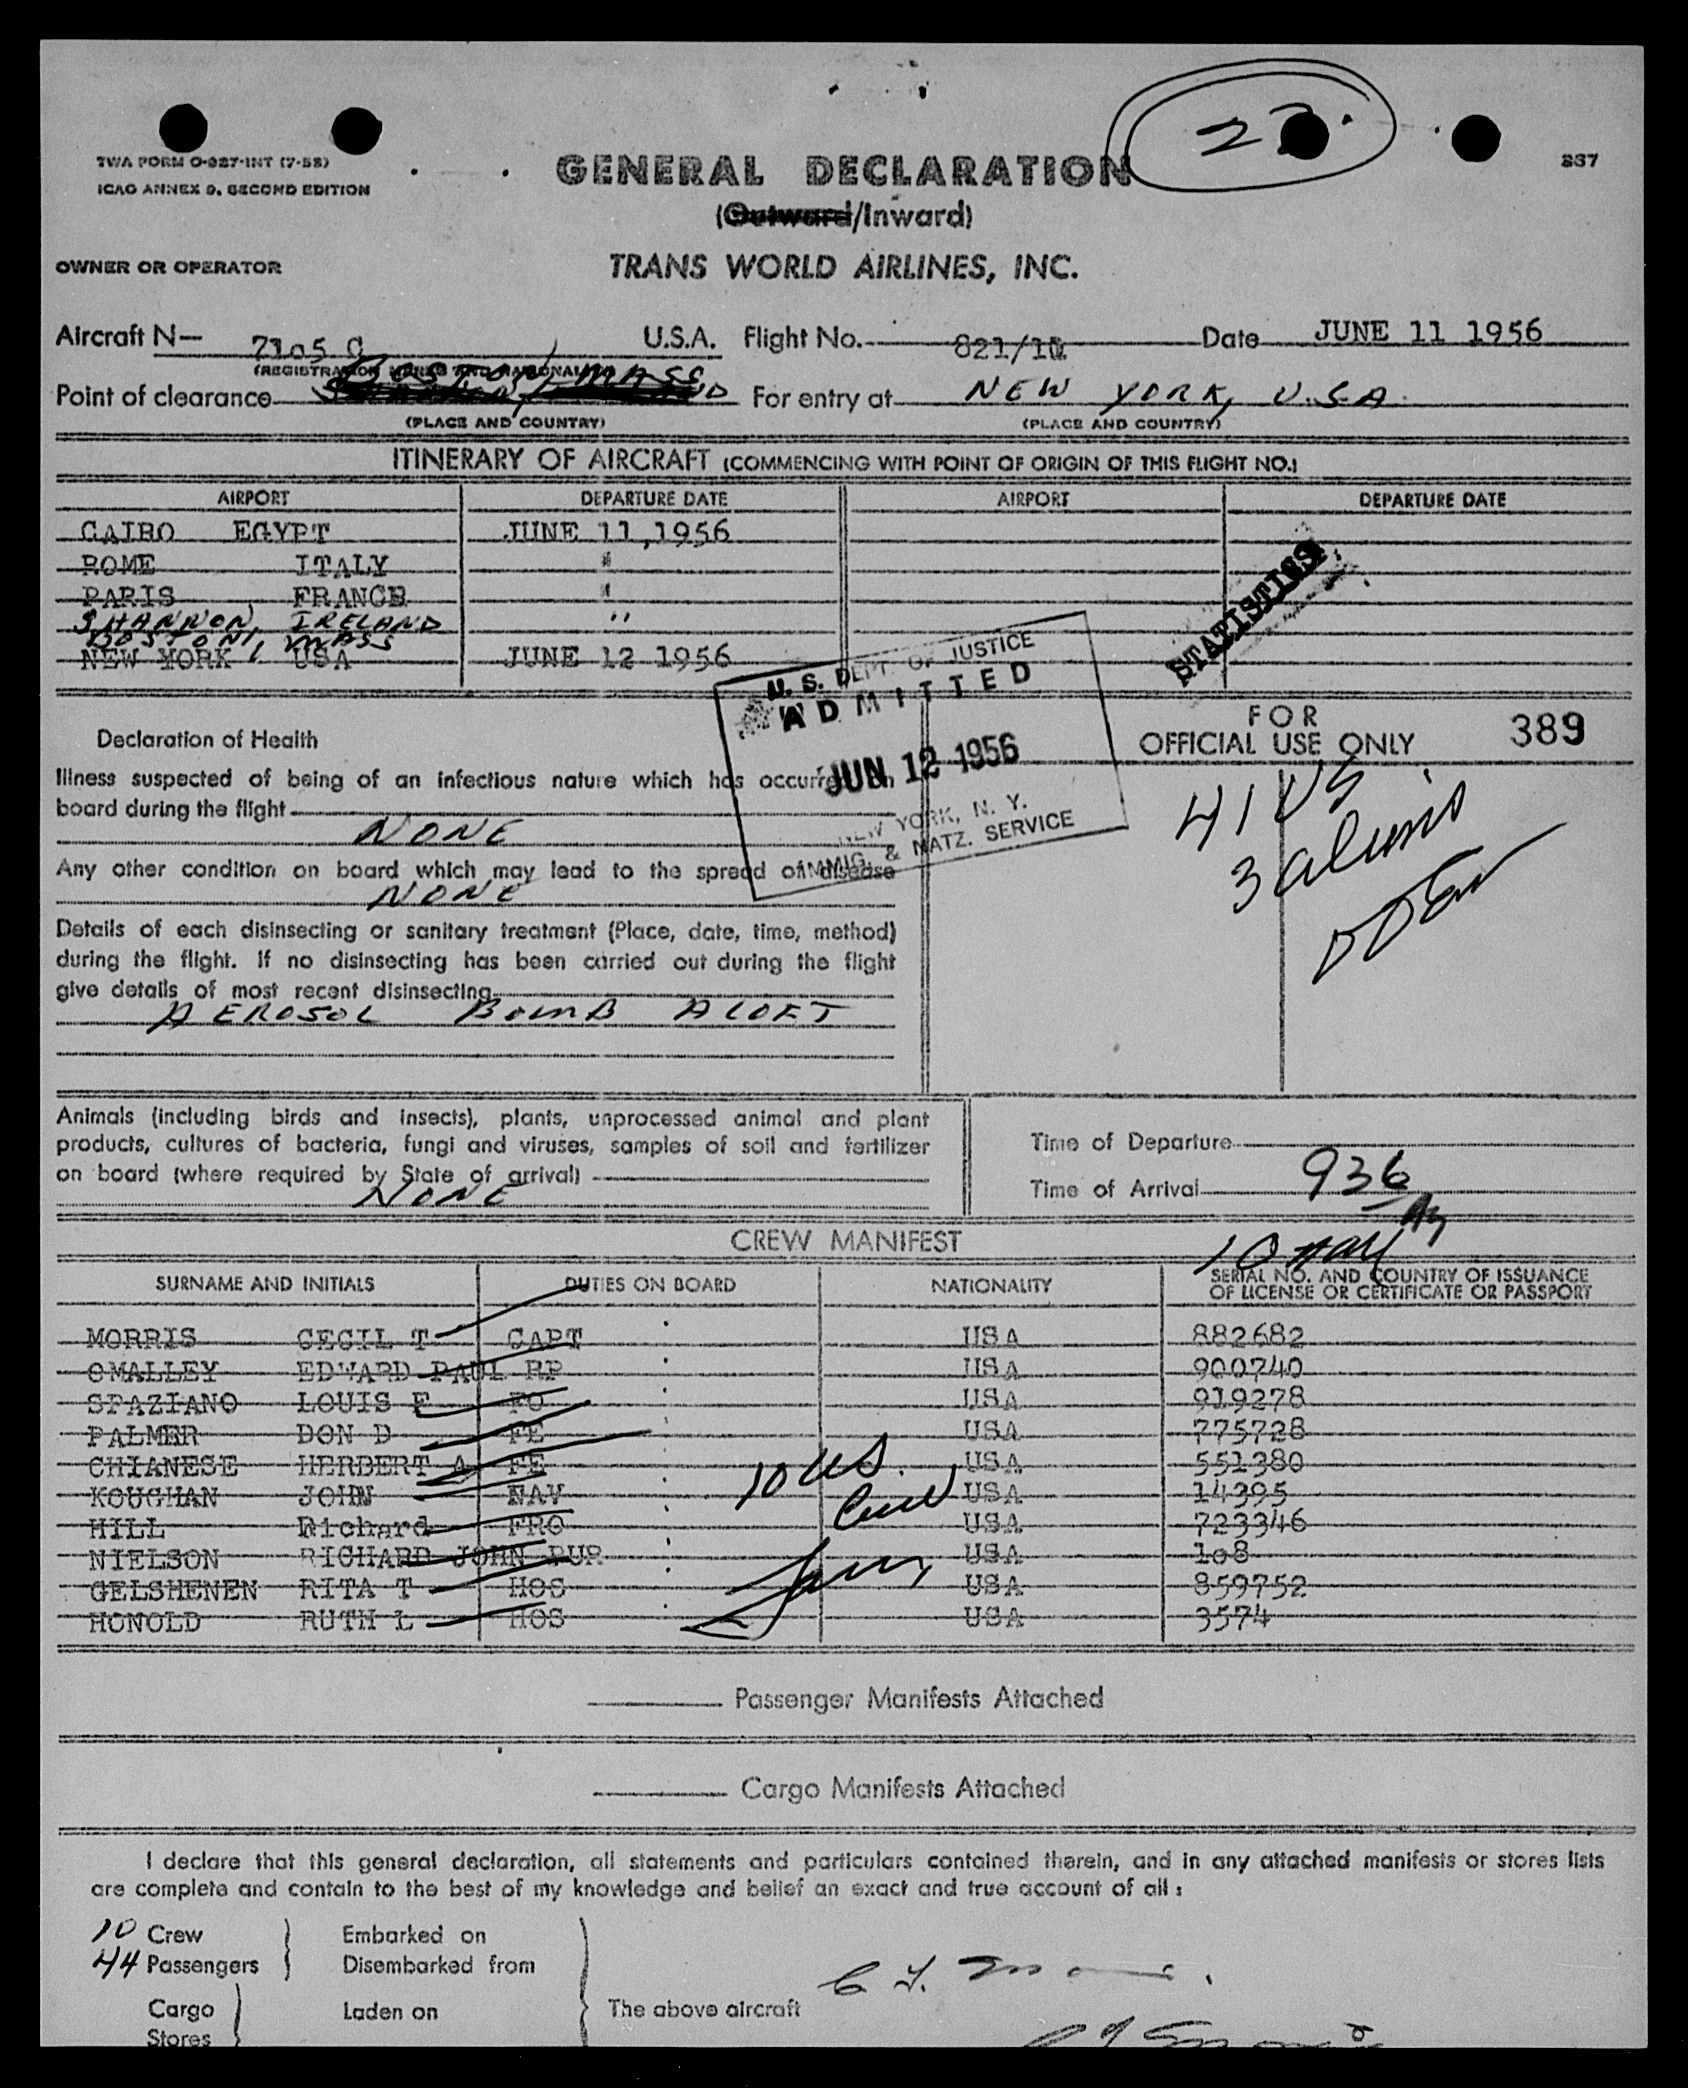 TWA FORM O-927-INT (7-53)
ICAO ANNEX 9, SECOND EDITION
237
GENERAL DECLARATION
(Outward/Inward)
OWNER OR OPERATOR
TRANS WORLD AIRLINES, INC.
Aircraft N— 7105 C U.S.A. Flight No. 821/11 Date JUNE 11 1956
(REGISTRATION MARKS AND NATIONALITY)
Point of clearance BOSTON, MASS For entry at NEW YORK, U.S.A.
(PLACE AND COUNTRY) (PLACE AND COUNTRY)
ITINERARY OF AIRCRAFT (COMMENCING WITH POINT OF ORIGIN OF THIS FLIGHT NO.)
AIRPORT DEPARTURE DATE AIRPORT DEPARTURE DATE
CAIRO EGYPT JUNE 11,1956
ROME ITALY "
PARIS FRANCE "
SHANNON, IRELAND "
BOSTON, MASS
NEW YORK USA JUNE 12 1956
STATISTICS
U. S. DEPT. OF JUSTICE
ADMITTED
JUN 12 1956
NEW YORK, N. Y.
IMMIG. & NATZ. SERVICE
FOR
OFFICIAL USE ONLY 389
41 US
3 aliens
Declaration of Health
Illness suspected of being of an infectious nature which has occurred on
board during the flight
NONE
Any other condition on board which may lead to the spread of disease
NONE
Details of each disinsecting or sanitary treatment (Place, date, time, method)
during the flight. If no disinsecting has been carried out during the flight
give details of most recent disinsecting
AEROSOL BOMB ALOFT
Animals (including birds and insects), plants, unprocessed animal and plant
products, cultures of bacteria, fungi and viruses, samples of soil and fertilizer
on board (where required by State of arrival)
NONE
Time of Departure
Time of Arrival 936
CREW MANIFEST
SURNAME AND INITIALS DUTIES ON BOARD NATIONALITY SERIAL NO. AND COUNTRY OF ISSUANCE
OF LICENSE OR CERTIFICATE OR PASSPORT
MORRIS CECIL T CAPT USA 882682
OMALLEY EDWARD PAUL RP USA 900740
SPAZIANO LOUIS F FO USA 919278
PALMER DON D FE USA 775728
CHIANESE HERBERT A FE USA 551380
KOUGHAN JOHN NAV USA 14395
HILL Richard FRO USA 723346
NIELSON RICHARD JOHN PUR USA 108
GELSHENEN RITA T HOS USA 859752
HONOLD RUTH L HOS USA 3574
10 US
Crew
Passenger Manifests Attached
Cargo Manifests Attached
I declare that this general declaration, all statements and particulars contained therein, and in any attached manifests or stores lists
are complete and contain to the best of my knowledge and belief an exact and true account of all:
10 Crew Embarked on
44 Passengers Disembarked from
Cargo Laden on The above aircraft
Stores